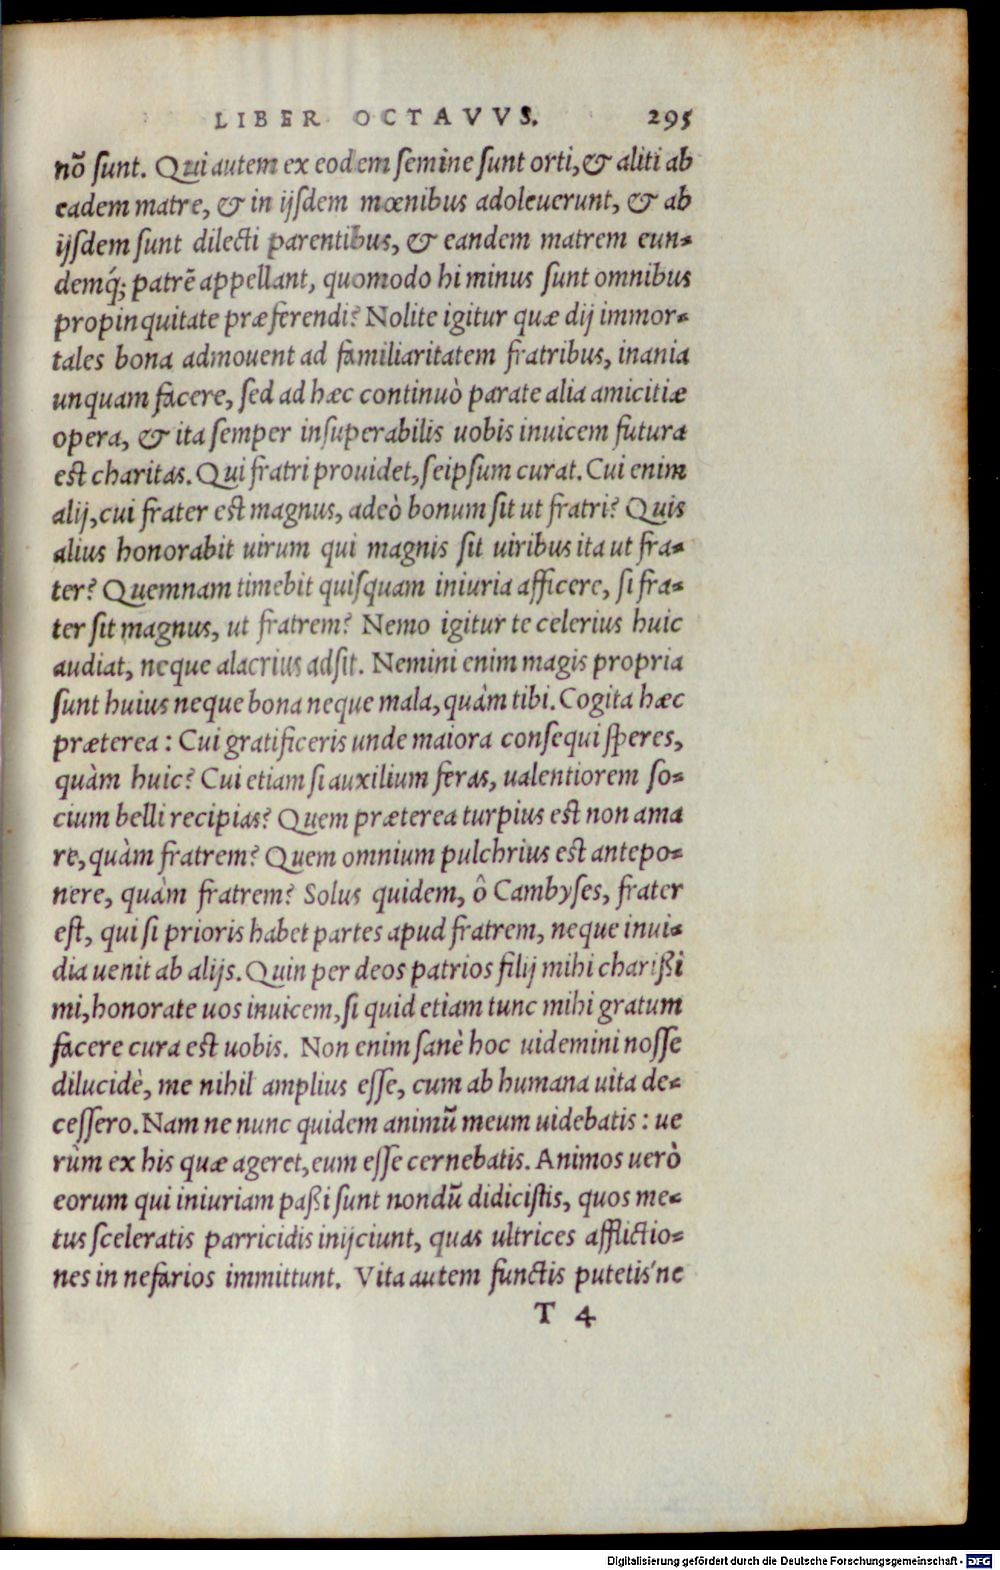 LIBER OCTAVVS. 295
nõ sunt. Qui autem ex eodem semine sunt orti, & aliti ab
eadem matre, & in ijsdem mœnibus adoleuerunt, & ab
ijsdem sunt dilecti parentibus, & eandem matrem eun-
demq́; patrē appellant, quomodo hi minus sunt omnibus
propinquitate præferendi? Nolite igitur quæ dij immor-
tales bona admouent ad familiaritatem fratribus, inania
unquam facere, sed ad hæc continuò parate alia amicitiæ
opera, & ita semper insuperabilis uobis inuicem futura
est charitas. Qui fratri prouidet, seipsum curat. Cui enim
alij, cui frater est magnus, adeò bonum sit ut fratri? Quis
alius honorabit uirum qui magnis sit uiribus ita ut fra-
ter? Quemnam timebit quisquam iniuria afficere, si fra-
ter sit magnus, ut fratrem? Nemo igitur te celerius huic
audiat, neque alacrius adsit. Nemini enim magis propria
sunt huius neque bona neque mala, quàm tibi. Cogita hæc
præterea: Cui gratificeris unde maiora consequi speres,
quàm huic? Cui etiam si auxilium feras, ualentiorem so-
cium belli recipias? Quem præterea turpius est non ama
re, quàm fratrem? Quem omnium pulchrius est antepo-
nere, quàm fratrem? Solus quidem, ô Cambyses, frater
est, qui si prioris habet partes apud fratrem, neque inui-
dia uenit ab alijs. Quin per deos patrios filij mihi charißi
mi, honorate uos inuicem, si quid etiam tunc mihi gratum
facere cura est uobis. Non enim sanè hoc uidemini nosse
dilucidè, me nihil amplius esse, cum ab humana uita de-
cessero. Nam ne nunc quidem animũ meum uidebatis: ue
rùm ex his quæ ageret, eum esse cernebatis. Animos uerò
eorum qui iniuriam paßi sunt nondũ didicistis, quos me-
tus sceleratis parricidis inijciunt, quas ultrices afflictio-
nes in nefarios immittunt. Vita autem functis putetis'ne
T 4
Digitalisierung gefördert durch die Deutsche Forschungsgemeinschaft - DFG